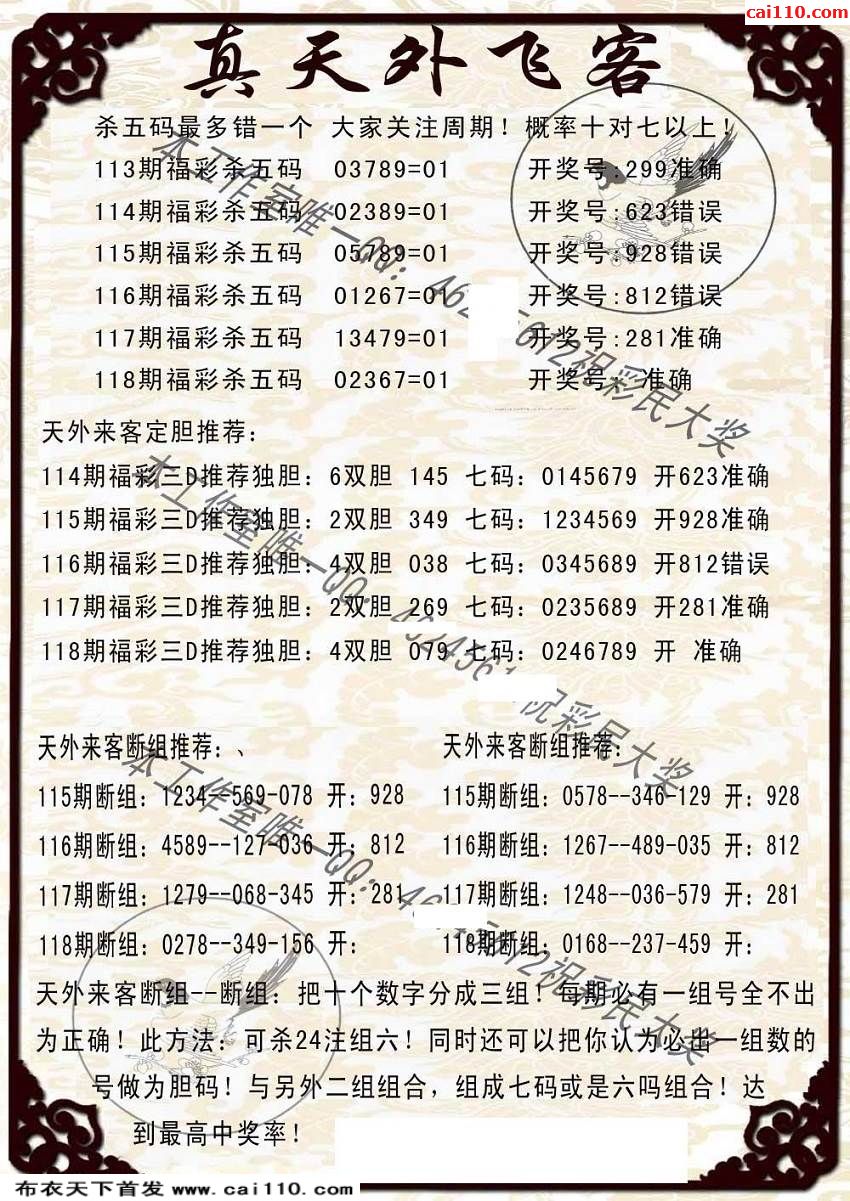 cai110.com
真天外飞客
杀五码最多错一个 大家关注周期！概率十对七以上！
113期福彩杀五码 03789=01 开奖号:299准确
114期福彩杀五码 02389=01 开奖号:623错误
115期福彩杀五码 05189=01 开奖号:928错误
116期福彩杀五码 01267=01 开奖号:812错误
117期福彩杀五码 13479=01 开奖号:281准确
118期福彩杀五码 02367=01 开奖号: 准确
天外来客定胆推荐：
114期福彩三D推荐独胆：6双胆 145 七码：0145679 开623准确
115期福彩三D推荐独胆：2双胆 349 七码：1234569 开928准确
116期福彩三D推荐独胆：4双胆 038 七码：0345689 开812错误
117期福彩三D推荐独胆：2双胆 269 七码：0235689 开281准确
118期福彩三D推荐独胆：4双胆 079 七码：0246789 开 准确
天外来客断组推荐：、
115期断组：1234--569-078 开：928
116期断组：4589--127-036 开：812
117期断组：1279--068-345 开：281
118期断组：0278--349-156 开：
天外来客断组推荐：
115期断组：0578--346-129 开：928
116期断组：1267--489-035 开：812
117期断组：1248--036-579 开：281
118期断组：0168--237-459 开：
天外来客断组--断组：把十个数字分成三组！每期必有一组号全不出
为正确！此方法：可杀24注组六！同时还可以把你认为必出一组数的
号做为胆码！与另外二组组合，组成七码或是六吗组合！达
到最高中奖率！
本工作室唯一QQ：祝彩民大奖
本工作室唯一QQ：祝彩民大奖
本工作室唯一QQ：祝彩民大奖
布衣天下首发 www.cai110.com